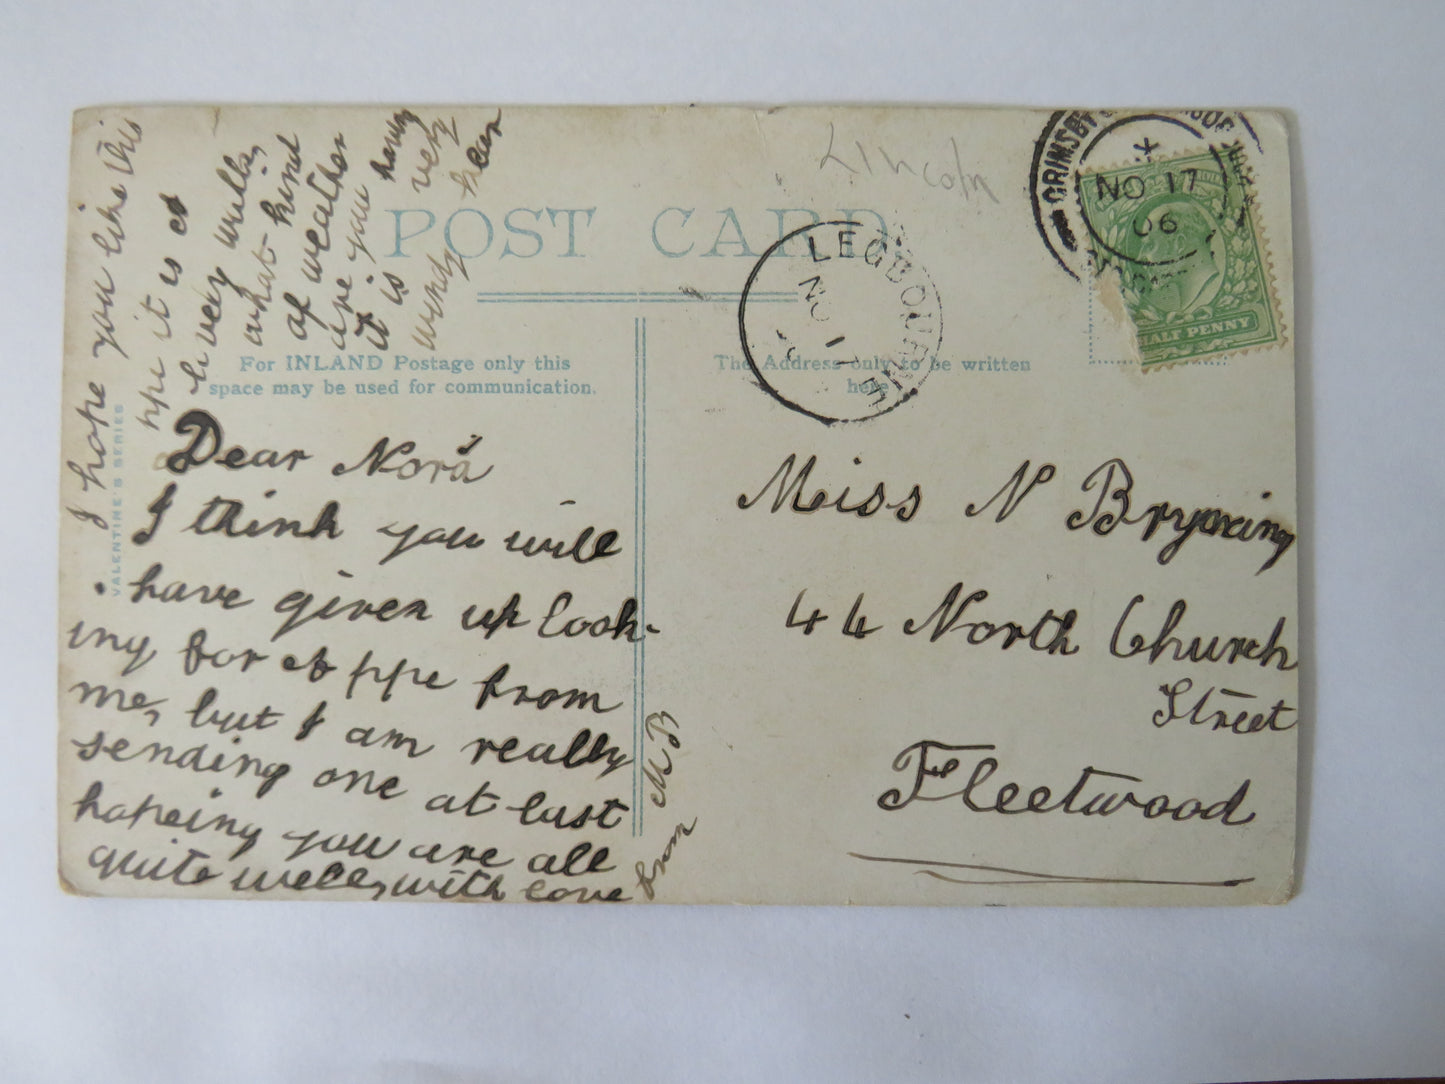 Lincoln
POST CARD
GRIMSBY
NO 17
06
HALF PENNY
LEGBOURNE
NO 17
For INLAND Postage only this
space may be used for communication.
The Address only to be written
here
VALENTINE'S SERIES
Dear Nora
I think you will
have given up look-
ing for a ppc from
me, but I am really
sending one at last
hopeing you are all
quite well, with love
from MB
I hope you like this
ppc it is a
livery mills,
what kind
of weather
are you having
it is very
windy hear
Miss N Bryning
44 North Church
Street
Fleetwood